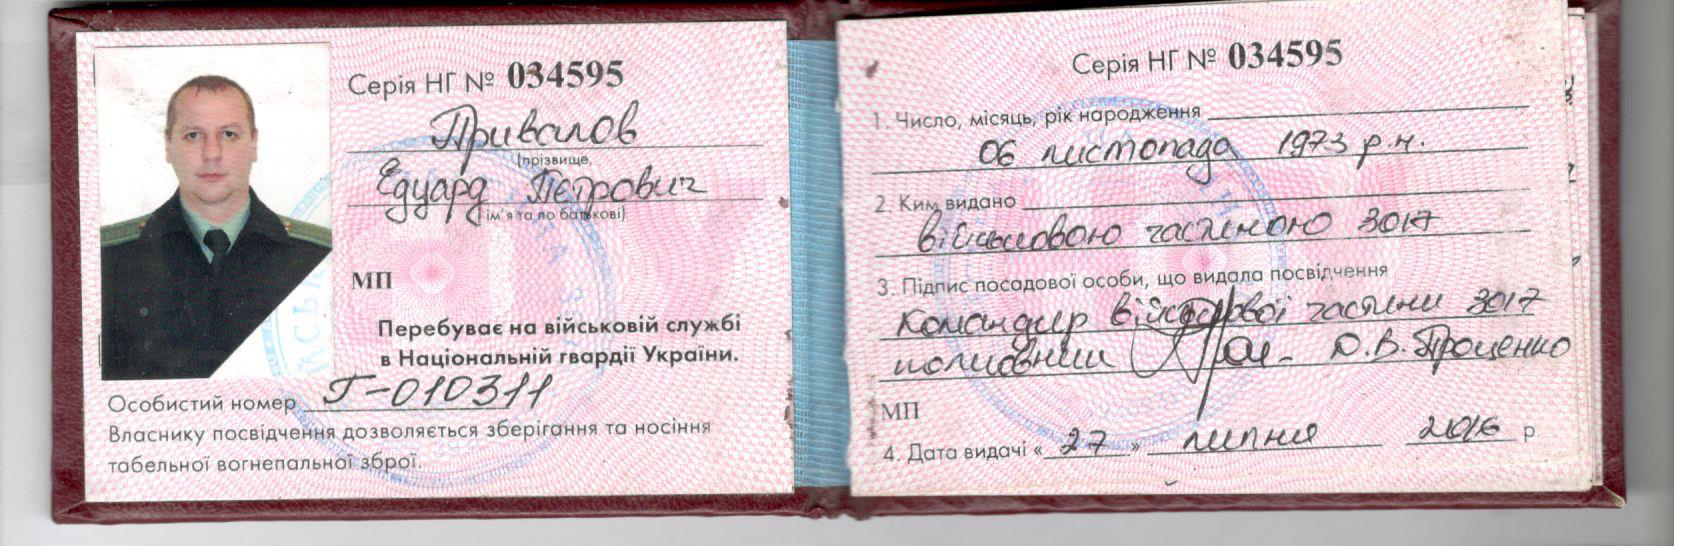 Серія НГ № 034595
Привалов
(прізвище,
Едуард Петрович
ім'я та по батькові)
МП
Перебуває на військовій службі
в Національній гвардії України.
Особистий номер Г-010311
Власнику посвідчення дозволяється зберігання та носіння
табельної вогнепальної зброї.
Серія НГ № 034595
1. Число, місяць, рік народження
06 листопада 1973 р.н.
2. Ким видано
військовою частиною 3017
3. Підпис посадової особи, що видала посвідчення
Командир військової частини 3017
полковник Проценко
МП
4. Дата видачі «27» липня 2016 р